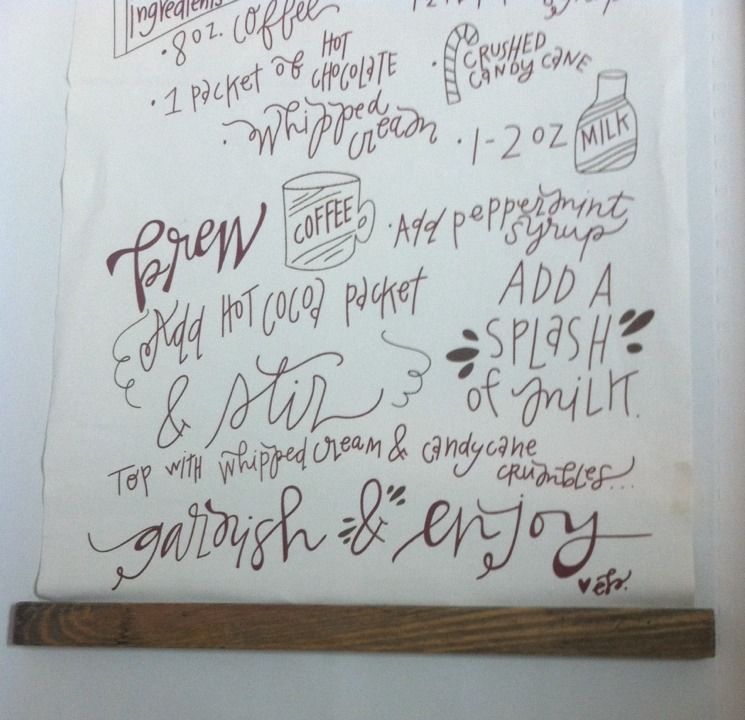 Ingredients
• 8 oz. coffee
• 1 packet of HOT CHOCOLATE
• CRUSHED CANDY CANE
• Whipped cream
• 1-2 oz MILK
brew COFFEE
• Add peppermint syrup
Add HOT COCOA packet
& stir
ADD A
SPLASH
of MILK.
TOP WITH whipped cream & candycane
crumbles...
garnish & enjoy